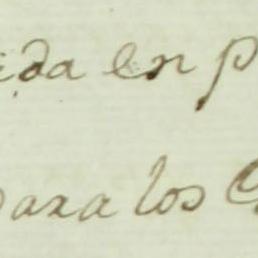 ida en p
para los